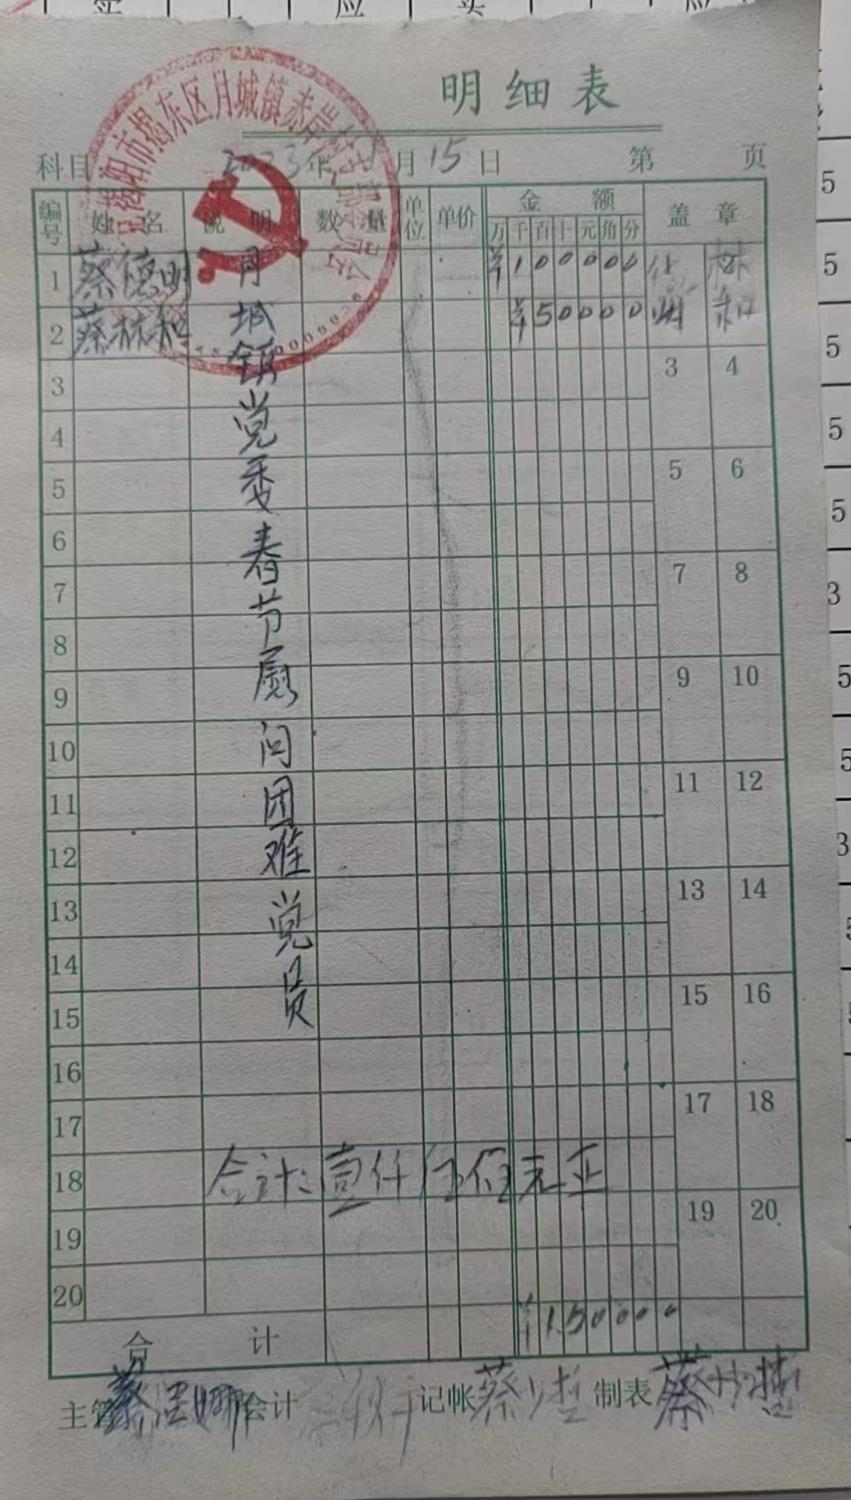 明细表
科目: 2023年1月15日 第 页
编号 姓名 说明 数量 单位 单价 金额 盖章
万 千 百 十 元 角 分
1 蔡德明 ¥100000
2 蔡林和 ¥50000 林和
月城镇党委春节慰问困难党员
3
4
5
6
7
8
9
10
11
12
13
14
15
16
17
18 合计:壹仟伍佰元正
19
20
3 4
5 6
7 8
9 10
11 12
13 14
15 16
17 18
19 20
合计 ¥150000
主管 会计 记帐 蔡 制表 蔡